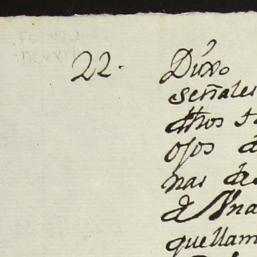 22. Dixo
señales
dhos
ojos d
nas de
d Ana
que llam